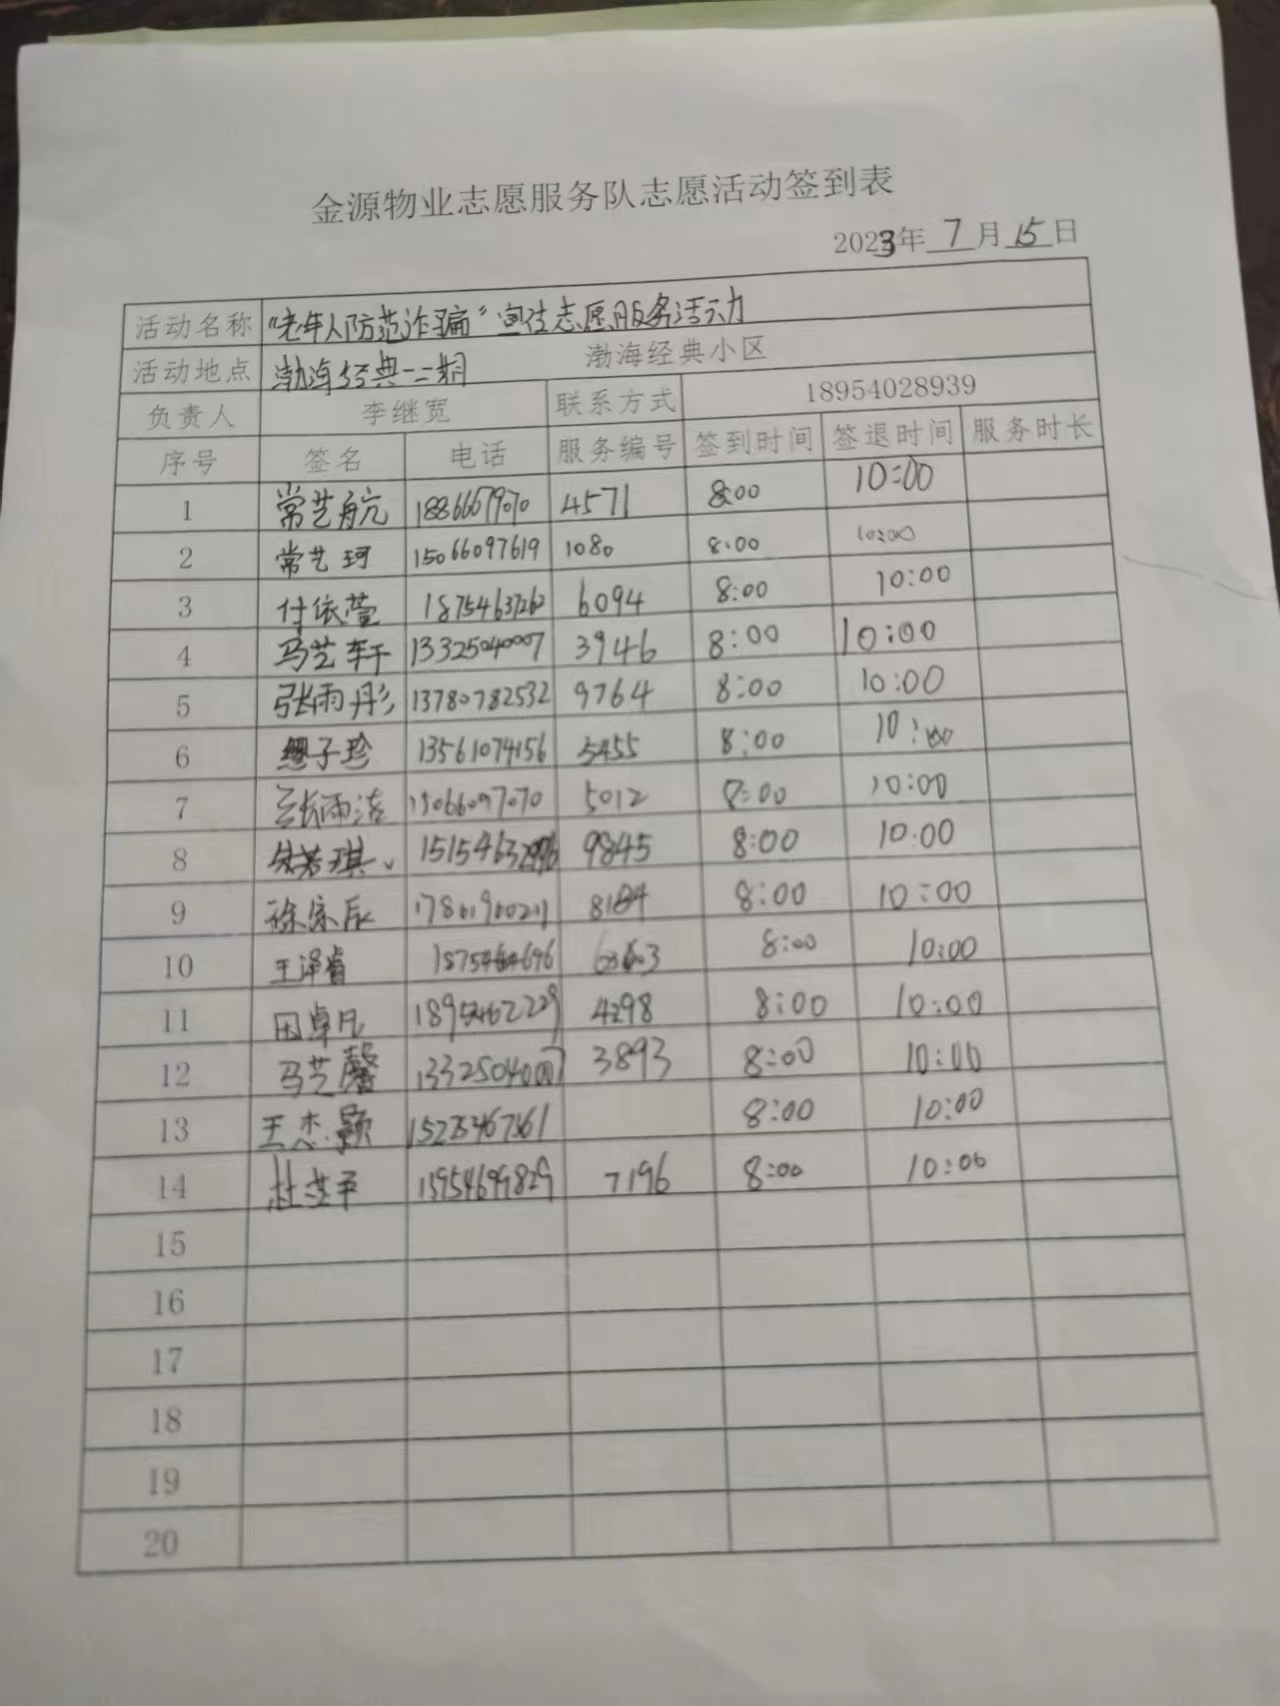 金源物业志愿服务队志愿活动签到表
2023年 7 月 15 日
活动名称 “老年人防范诈骗”宣传志愿服务活动
活动地点 渤海经典一二期 渤海经典小区
负责人 李继宽 联系方式 18954028939
序号 签名 电话 服务编号 签到时间 签退时间 服务时长
1 常艺航 18866679070 4571 8:00 10:00
2 常艺珂 15066097619 1080 8:00 10:00
3 付依萱 18754637262 6094 8:00 10:00
4 马艺轩 13325040007 3946 8:00 10:00
5 张雨彤 13780782532 9764 8:00 10:00
6 子珍 13561074156 5455 8:00 10:00
7 张雨洁 15066097070 5012 8:00 10:00
8 朱若琪 9845 8:00 10:00
9 徐宗辰 17801900211 8184 8:00 10:00
10 王泽睿 8:00 10:00
11 田卓凡 4298 8:00 10:00
12 马艺馨 13325040007 3893 8:00 10:00
13 王杰颖 8:00 10:00
14 杜芸平 13954699829 7196 8:00 10:00
15
16
17
18
19
20